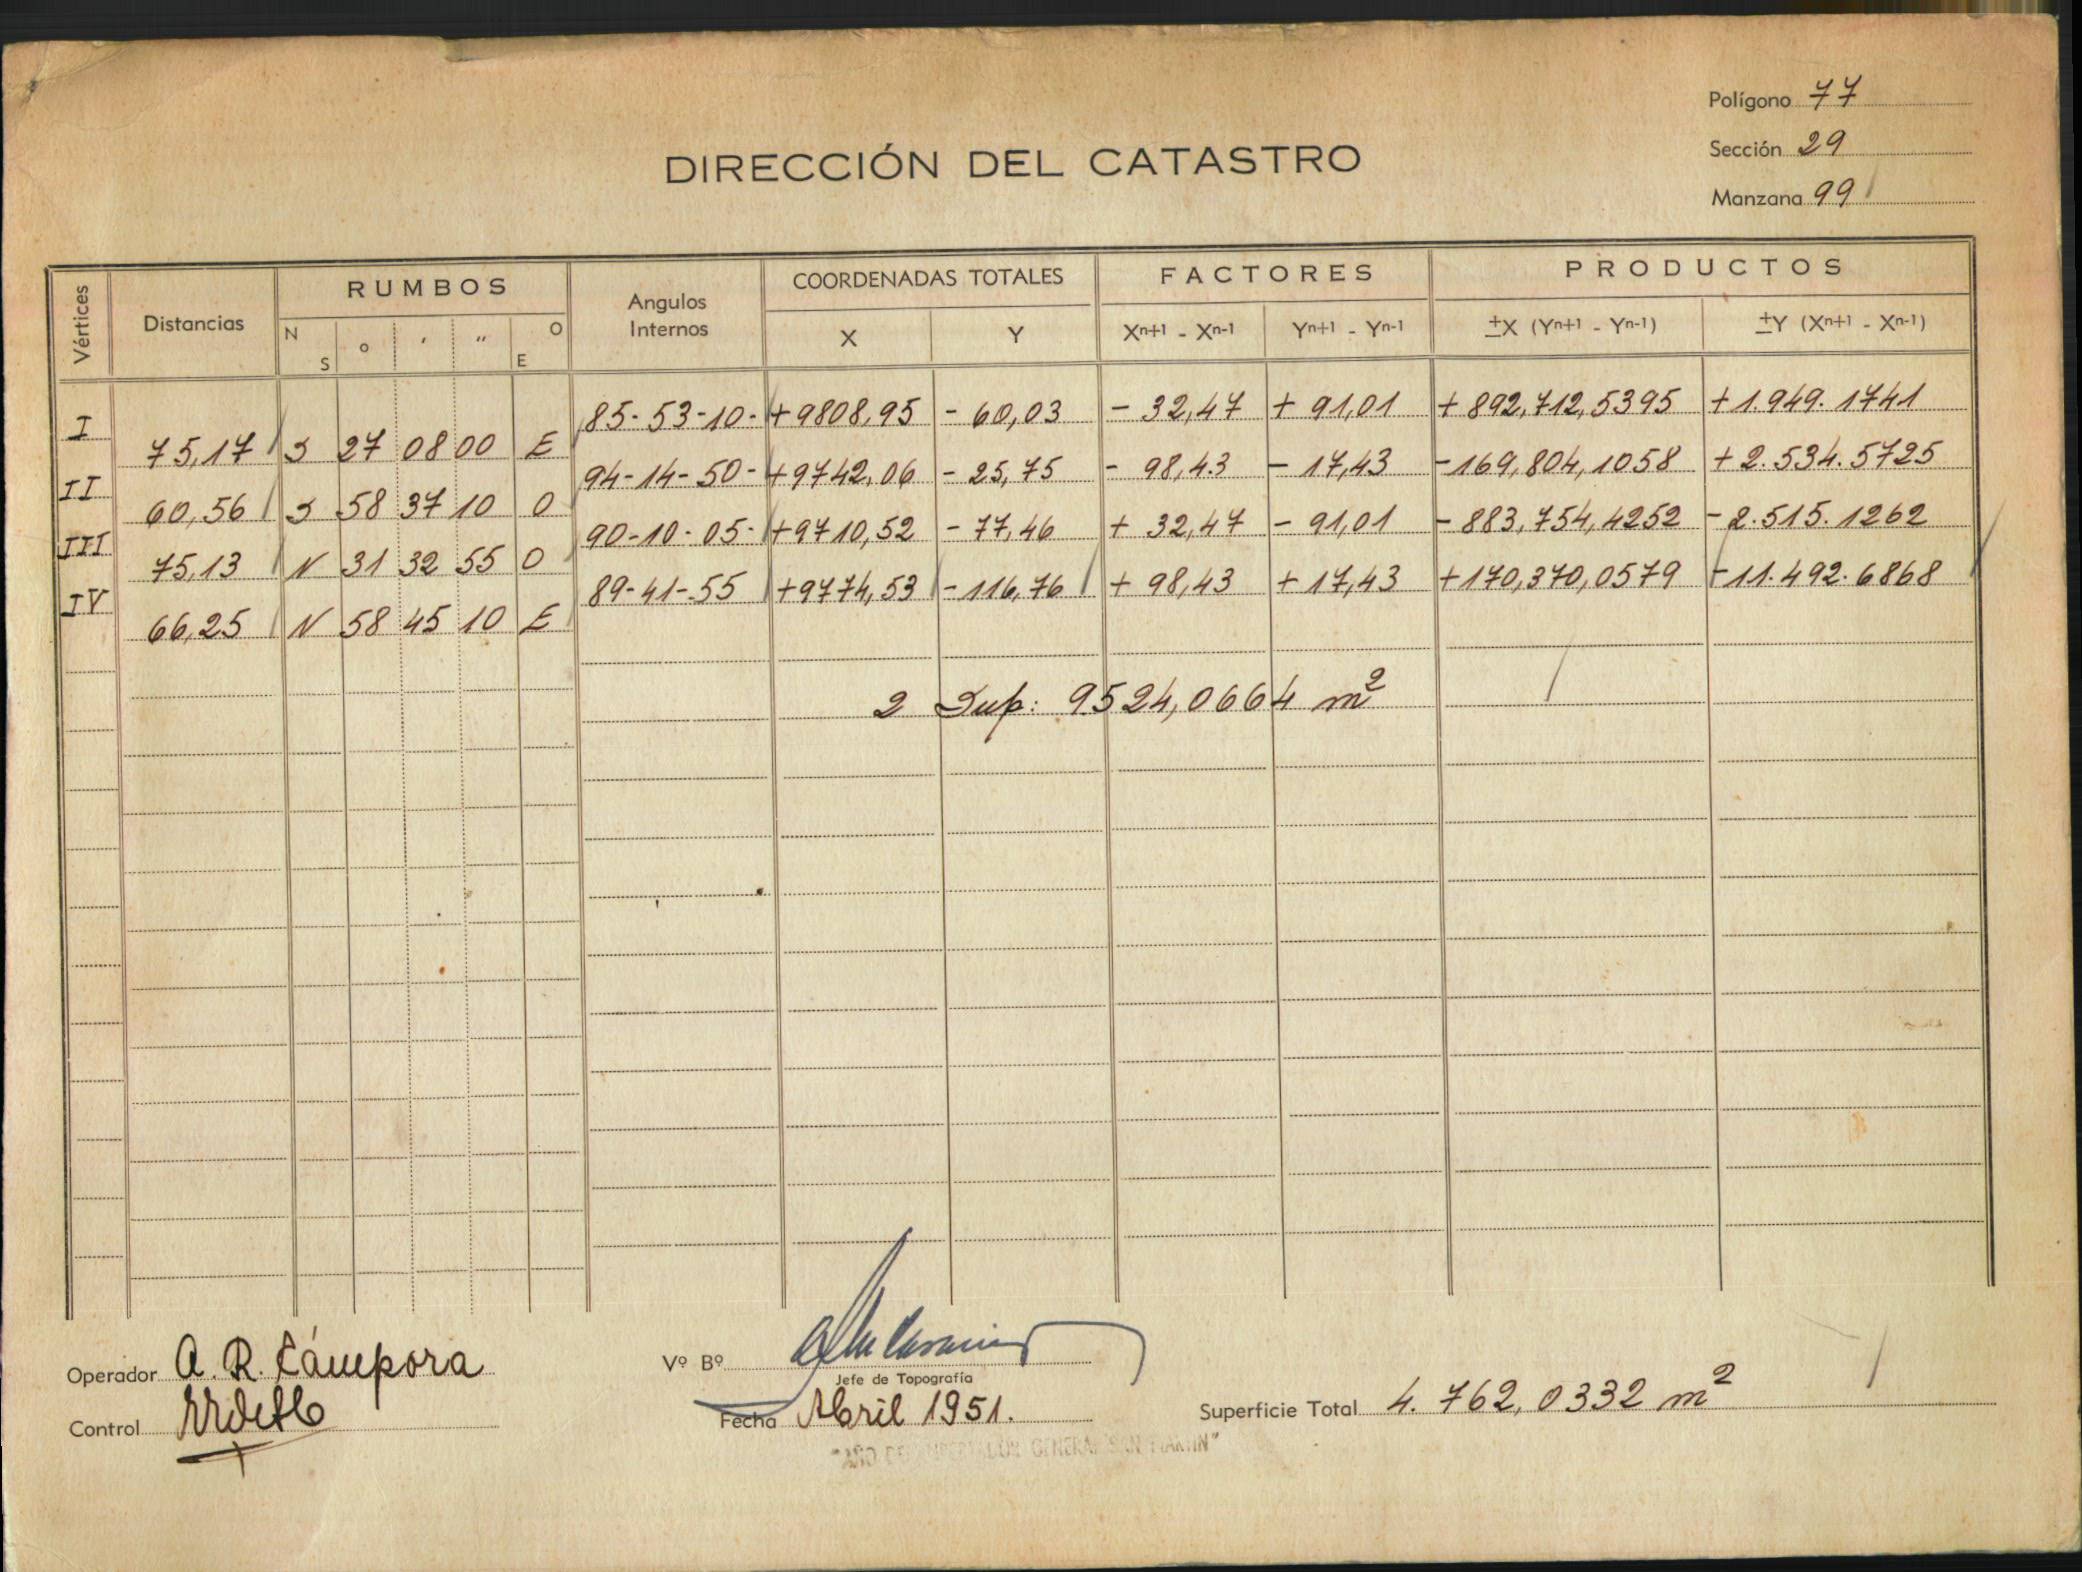 Polígono 77
DIRECCIÓN DEL CATASTRO
Sección 29
Manzana 99
Vértices
Distancias
RUMBOS
N S
o ' "
O E
Angulos Internos
COORDENADAS TOTALES
X Y
FACTORES
Xn+1 - Xn-1 Yn+1 - Yn-1
PRODUCTOS
±X (Yn+1 - Yn-1) ±Y (Xn+1 - Xn-1)
I 85-53-10- +9808,95 - 60,03 - 32,47 + 91,01 +892,712,5395 +1.949.1741
75,17 S 27 08 00 E
II 94-14-50- +9742,06 - 25,75 - 98,43 - 17,43 -169,804,1058 +2.534.5725
60,56 S 58 37 10 O
III 90-10-05- +9710,52 - 77,46 + 32,47 - 91,01 -883,754,4252 -2.515.1262
75,13 N 31 32 55 O
IV 89-41-55 +9774,53 -116,76 + 98,43 + 17,43 +170,370,0579 -11.492.6868
66,25 N 58 45 10 E
2 Sup: 9524,0664 m²
Operador A. R. Cámpora
Vº Bº
Jefe de Topografía
Control
Fecha Abril 1951.
Superficie Total 4.762,0332 m²
"AÑO DEL LIBERTADOR GENERAL SAN MARTIN"